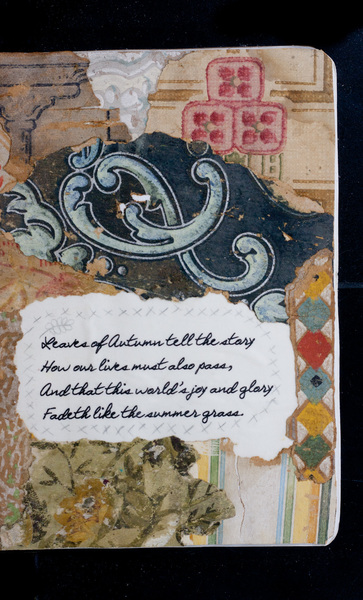 Leaves of Autumn tell the story
How our lives must also pass,
And that this world's joy and glory
Fadeth like the summer grass.